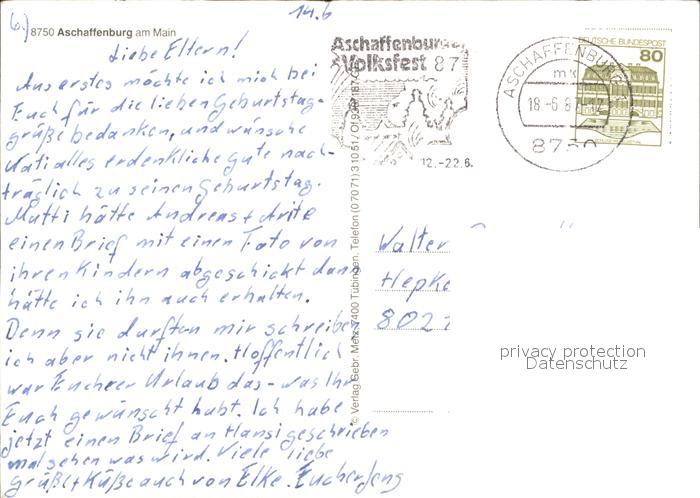 6.)
14.6
8750 Aschaffenburg am Main
Liebe Eltern!
Aus erstes möchte ich mich bei
Euch für die lieben Geburtstag-
grüße bedanken, und wünsche
Vati alles erdenkliche gute nach-
träglich zu seinen Geburtstag.
Mutti hätte Andreas + Anite
einen Brief mit einen Foto von
ihren Kindern abgeschickt dann
hätte ich ihn auch erhalten.
Denn sie durften mir schreiben
ich aber nicht ihnen. Hoffentlich
war Eucheer Urlaub das - was Ihr
Euch gewünscht habt. Ich habe
jetzt einen Brief an Hansi geschrieben
mal sehen was wird. Viele liebe
Grüße + Küße auch von Elke. Eucher Jens
© Verlag Gebr. Metz, 7400 Tübingen, Telefon (07071) 31051
Aschaffenburger
Volksfest 87
12.-22.6.
ASCHAFFENBURG
18.-6.8
8750
DEUTSCHE BUNDESPOST
80
Walter
Hepke
802
privacy protection
Datenschutz